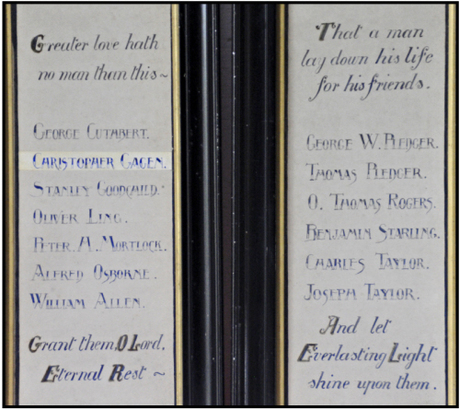 Greater love hath
no man than this ~
George Cuthbert.
Christopher Gagen.
Stanley Goodchild.
Oliver Ling.
Peter. A. Mortlock.
Alfred Osborne.
William Allen.
Grant them, O Lord,
Eternal Rest ~
That a man
lay down his life
for his friends.
George W. Pledger.
Thomas Pledger.
O. Thomas Rogers.
Benjamin Starling.
Charles Taylor.
Joseph Taylor.
And let
Everlasting Light
shine upon them.